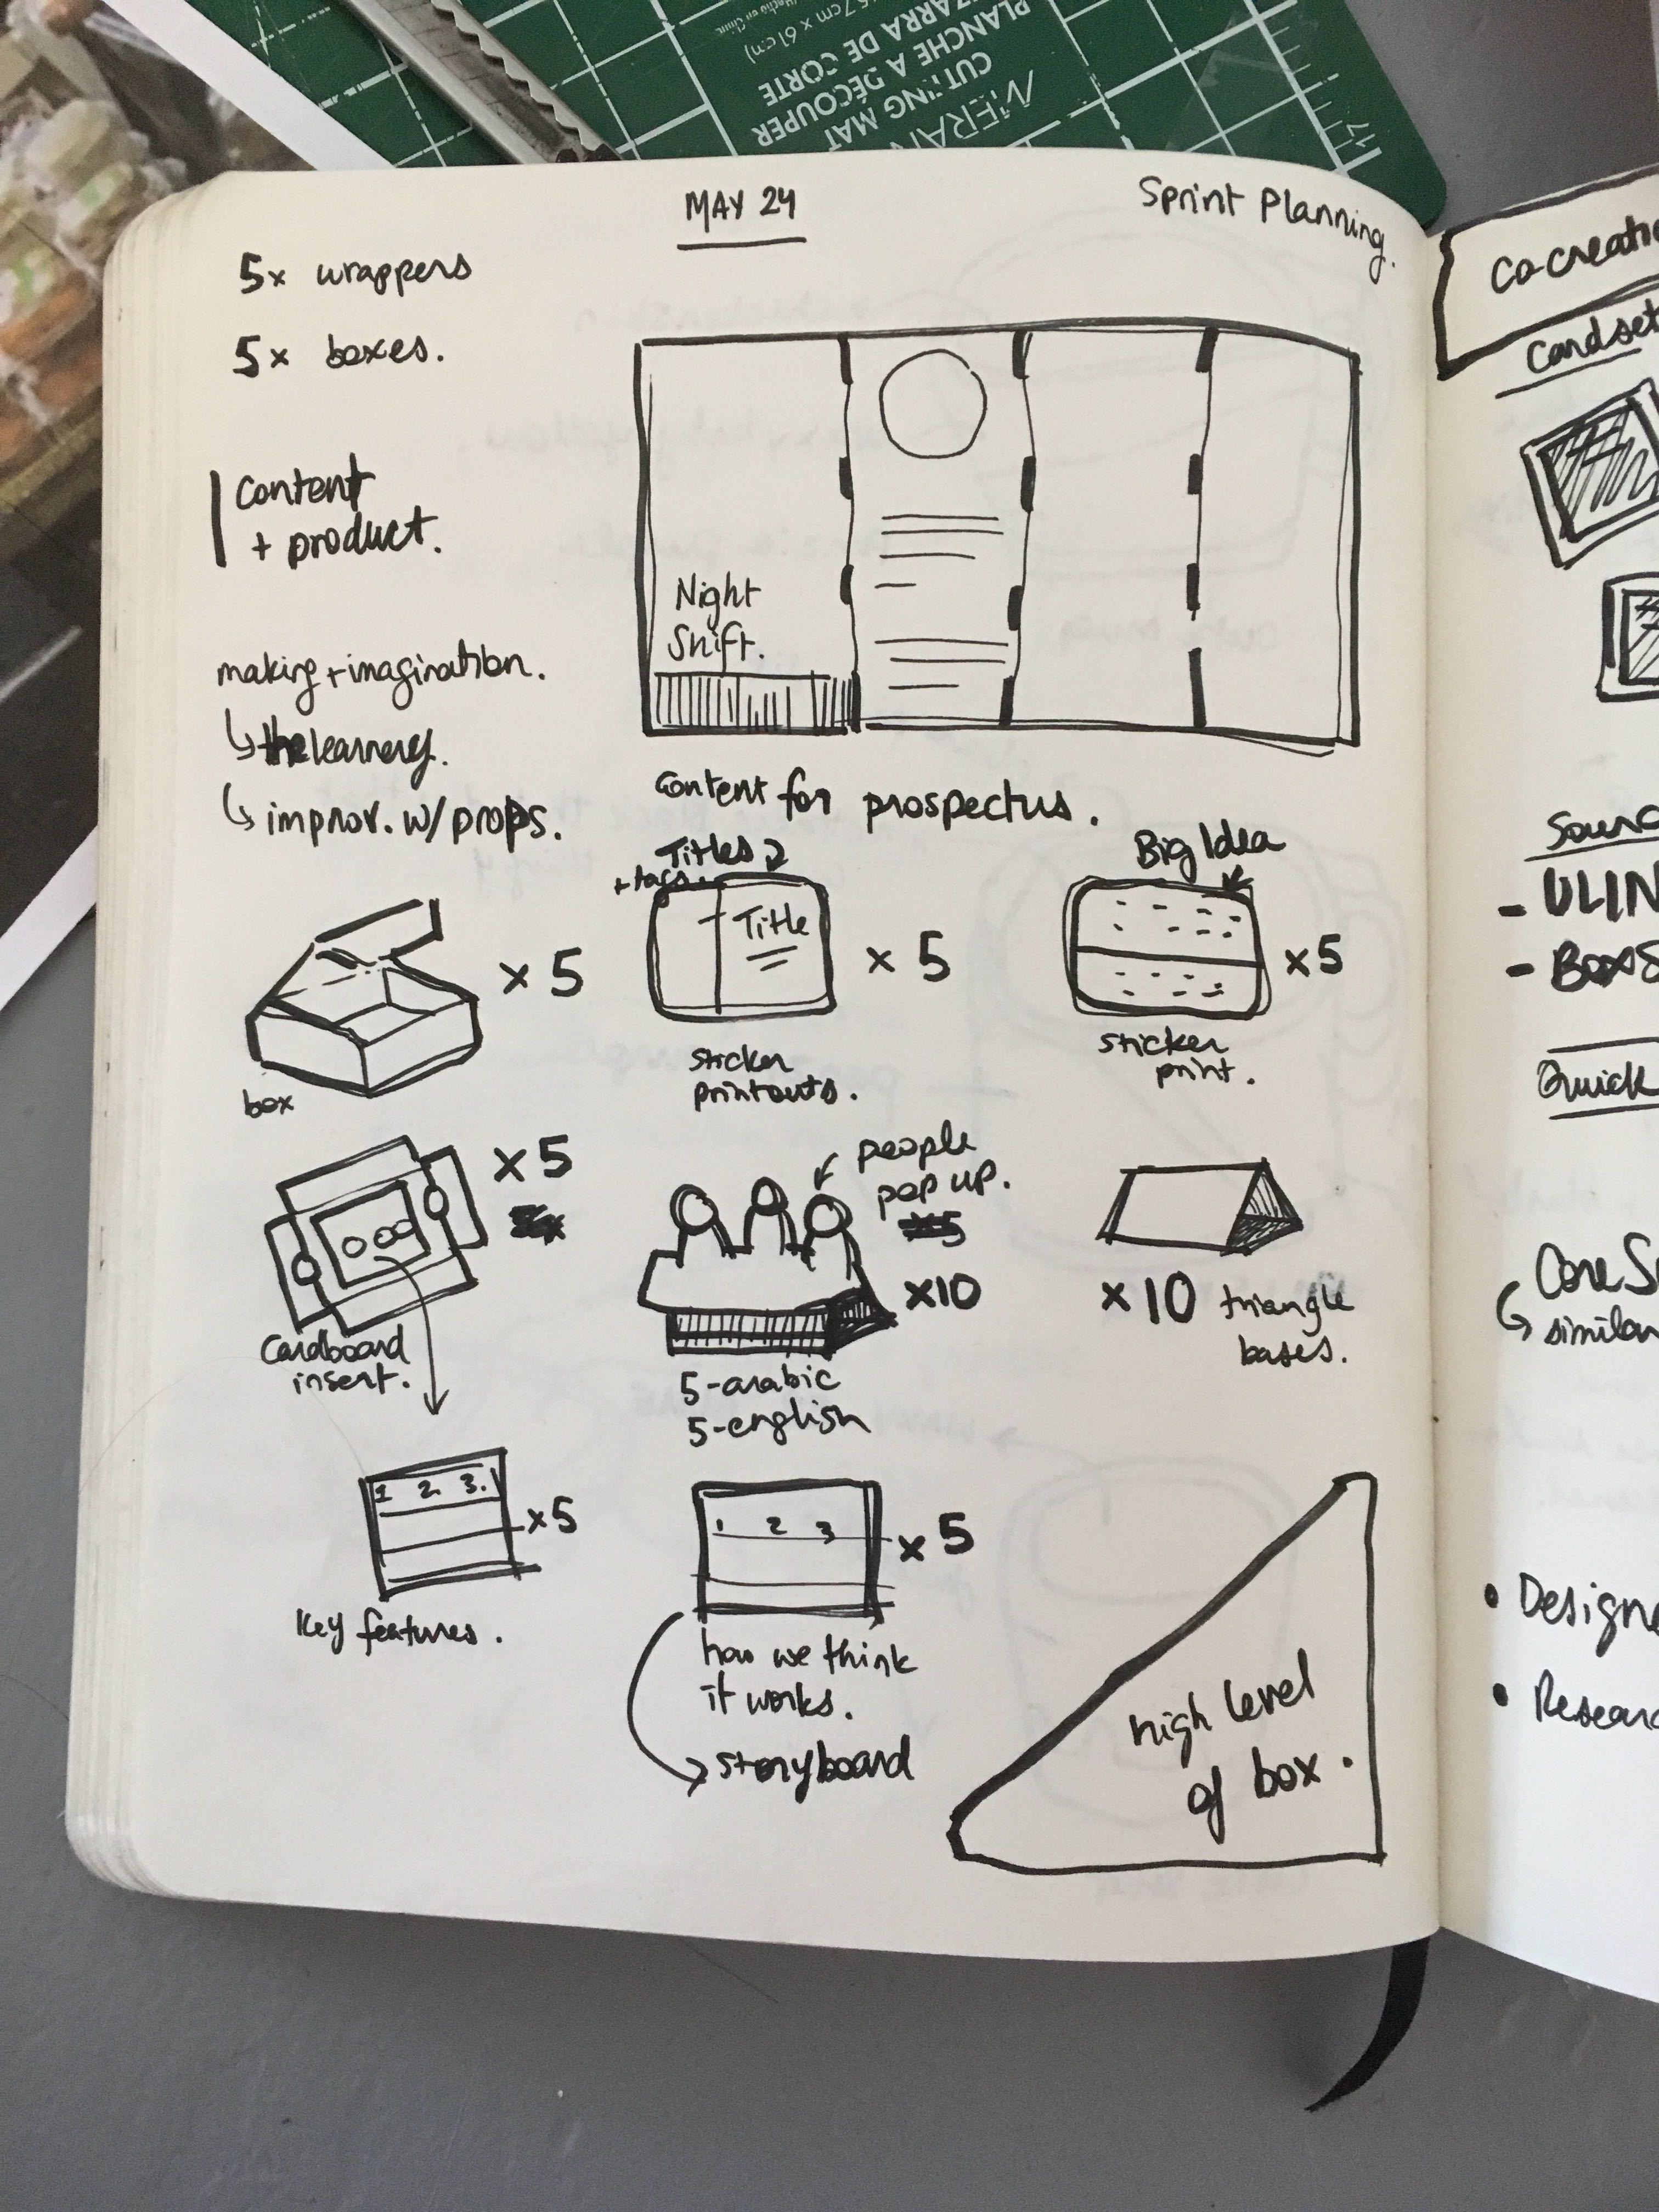 CUTTING MAT
PLANCHE A DÉCOUPER
DE CORTE
MAY 24
Sprint Planning.
5x wrappers
5x boxes.
Content
+ product.
making + imagination.
improv. w/ props.
Night
Shift.
Content for prospectus.
Titles
+ tags.
Title
x 5
sticker
printouts.
Big Idea
x5
sticker
print.
x 5
box
x5
Cardboard
insert.
people
pop up.
x10
5-arabic
5-english
x10 triangle
bases.
1 2. 3.
x5
Key features.
1 2 3
x 5
how we think
it works.
storyboard
high level
of box.
Co-creatio
Card set
Sourc
- ULIN
- BOXS
Quick
Core S
similar
• Designe
• Researc